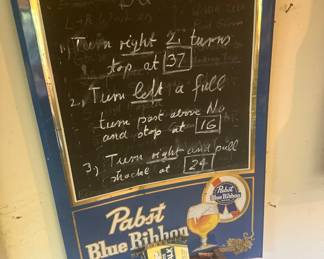 1.) Turn right 2 turns
stop at 37
2.) Turn left a full
turn past above No
and stop at 16
3.) Turn right and pull
at 24
Pabst
Blue Ribbon
Pabst
Blue Ribbon